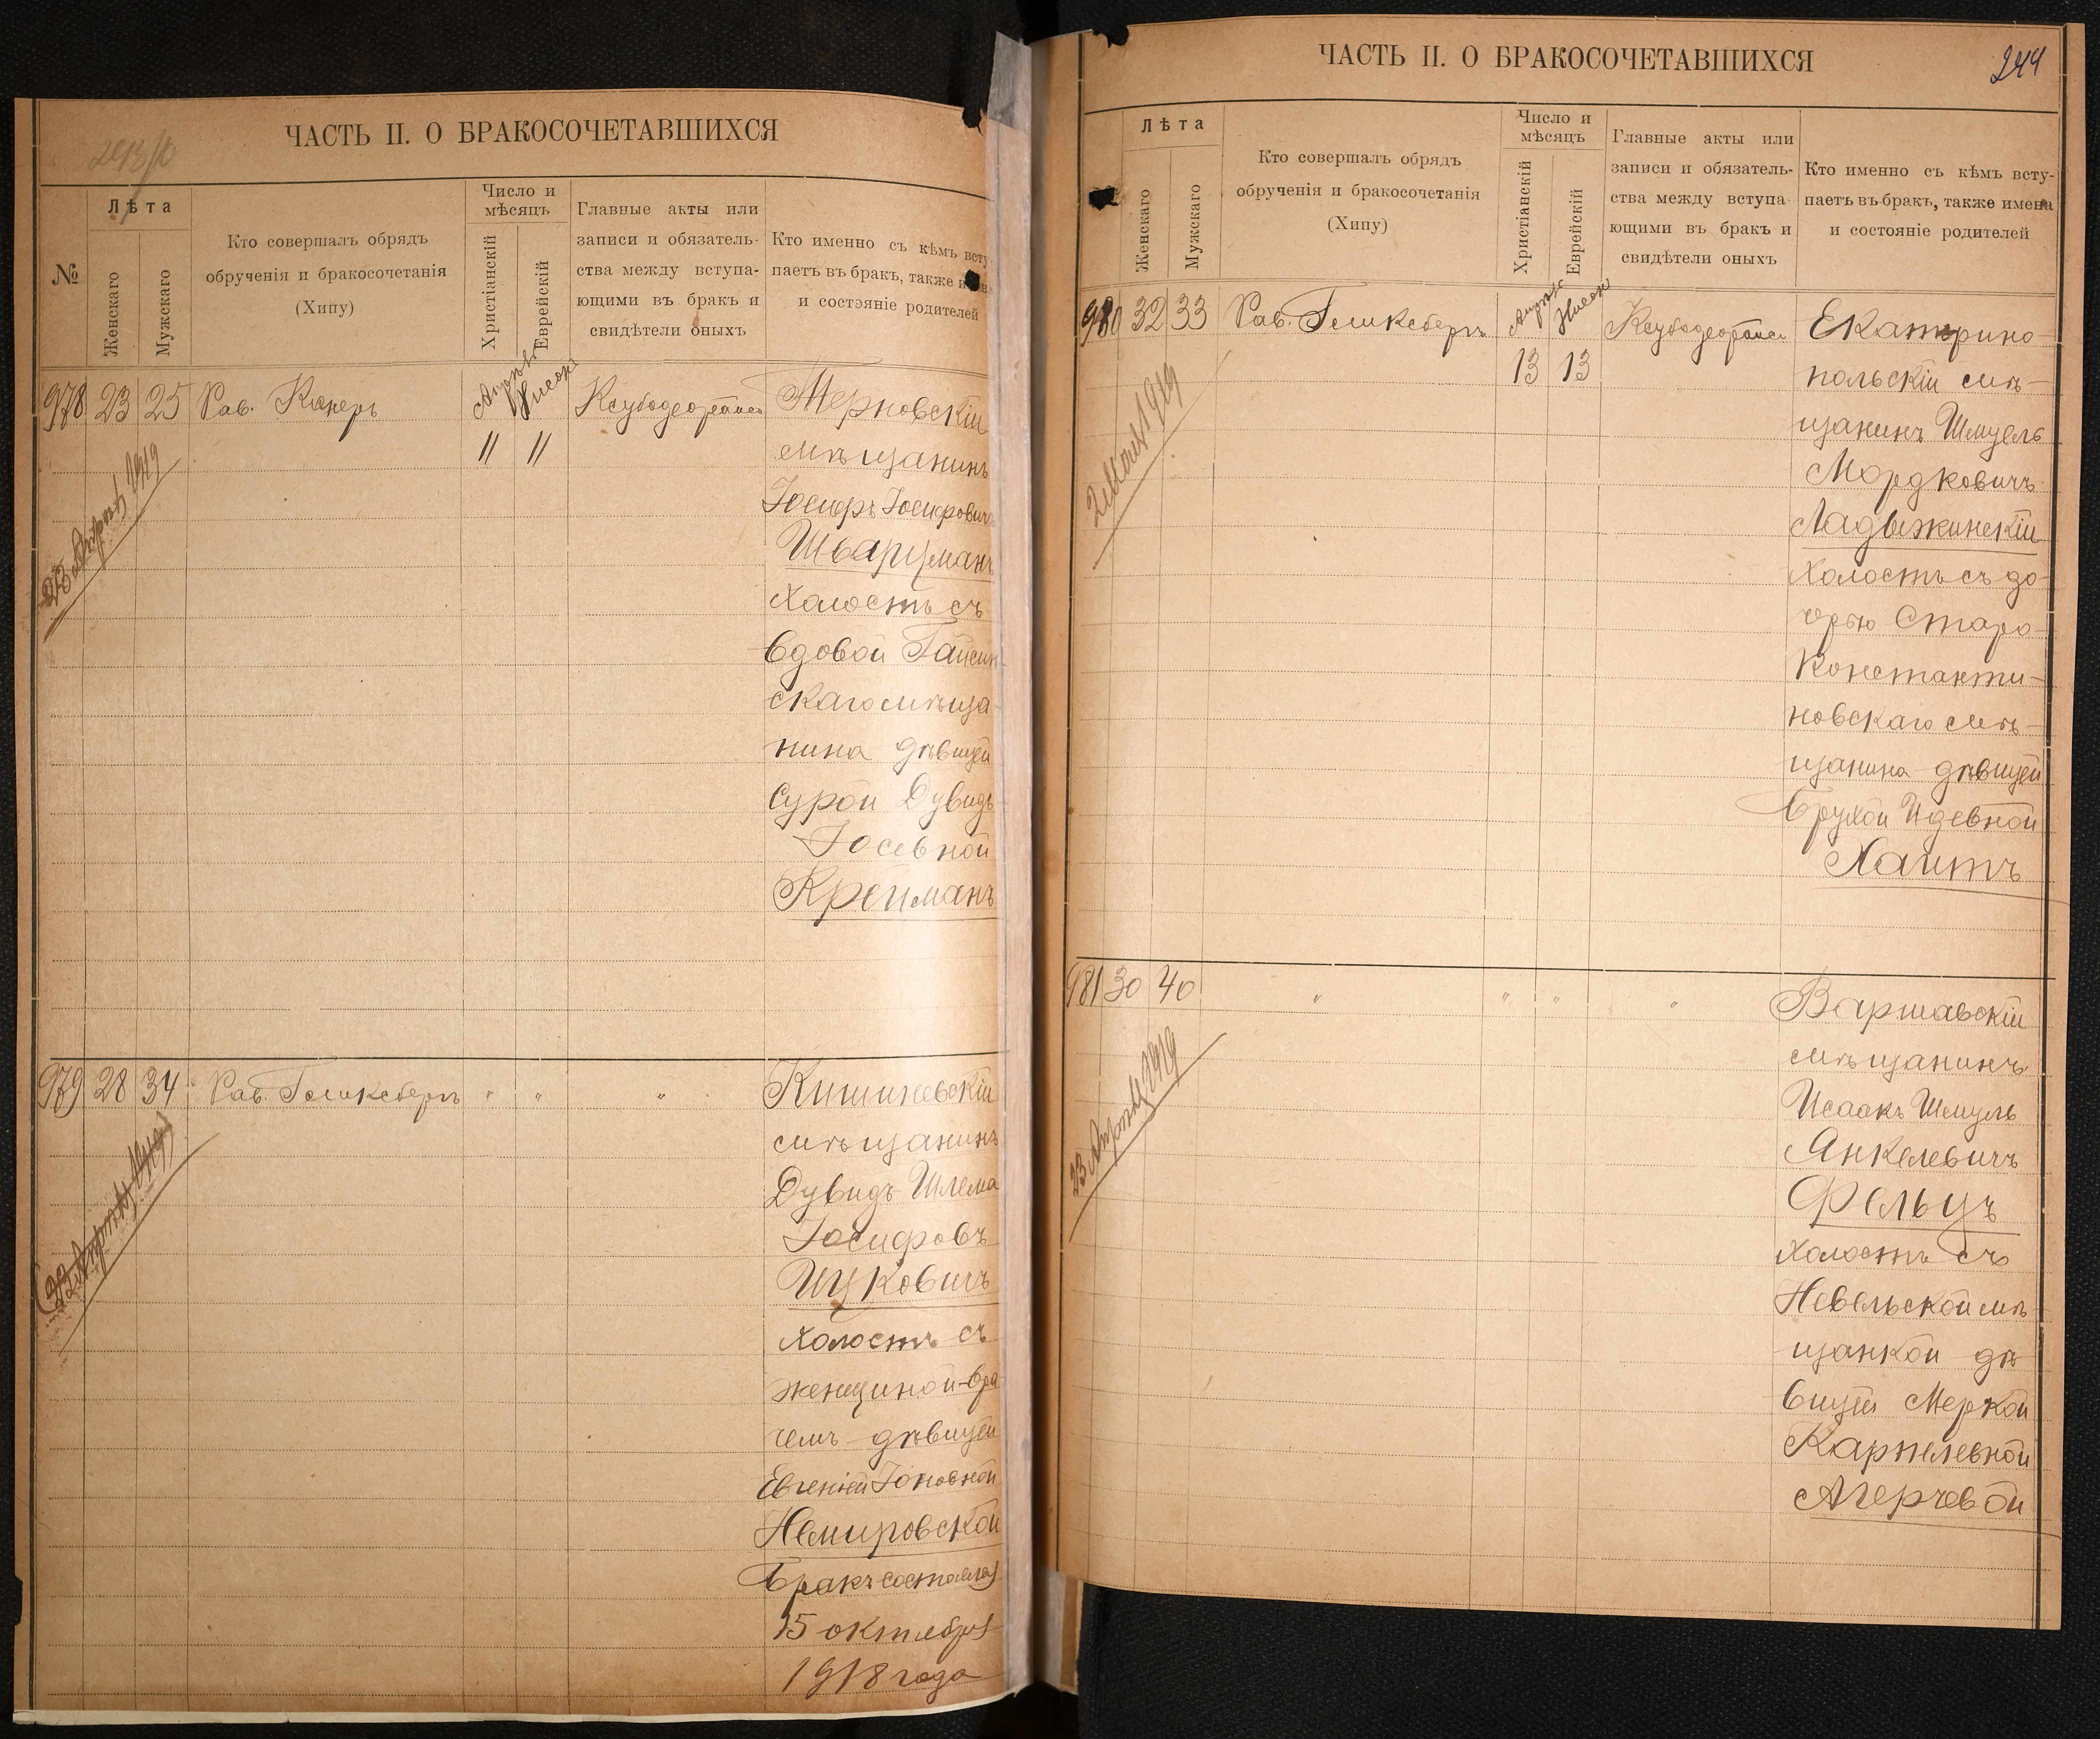 ЧАСТЬ II. О БРАКОСОЧЕТАВШИХСЯ
№
Лѣта
Женскаго
Мужскаго
Кто совершалъ обрядъ
обрученія и бракосочетанія
(Хипу)
Число и
мѣсяцъ
Христіанскій
Еврейскій
Главные акты или
записи и обязатель-
ства между вступа-
ющими въ бракъ и
свидѣтели оныхъ
Кто именно съ кѣмъ всту
паетъ въ бракъ, также
и состояніе родителей
978 23 25 Рав. Канеръ
11 11
мѣщанинъ
Іосифъ Іосифовичъ
Шварцманъ
холостъ съ
вдовой Гайсин
скаго мѣща
нина дѣвицей
Сурой Дувидъ
Іосевной
Крейманъ
979 28 34 Рав. " " "
Кишиневскій
мѣщанинъ
Дувидъ Шлема
Іосифовъ
Ицковичъ
холостъ съ
женщиной-вра
чемъ дѣвицей
Евгеніей Іоновной
Немировской
Бракъ состоялся
15 октября
1918 года
ЧАСТЬ II. О БРАКОСОЧЕТАВШИХСЯ
244
Лѣта
Женскаго
Мужскаго
Кто совершалъ обрядъ
обрученія и бракосочетанія
(Хипу)
Число и
мѣсяцъ
Христіанскій
Еврейскій
Главные акты или
записи и обязатель-
ства между вступа
ющими въ бракъ и
свидѣтели оныхъ
Кто именно съ кѣмъ всту-
паетъ въ бракъ, также имена
и состояніе родителей
980 32 33 Рав. Апрѣль Нисонъ
13 13
Екатерино-
польскій мѣ-
щанинъ Шмуель
Мордковичъ
Ладыжинскій
холостъ съ до-
черью Старо-
Константи-
новскаго мѣ-
щанина дѣвицей
Брухой Идевной
Хаитъ
981 30 40 " " " "
Варшавскій
мѣщанинъ
Исаакъ Шмуль
Янкелевичъ
Фельцъ
холостъ съ
Невельской мѣ
щанкой дѣ
вицей Меркой
Карпелевной
Агерчевой
23 Апрѣля 1919